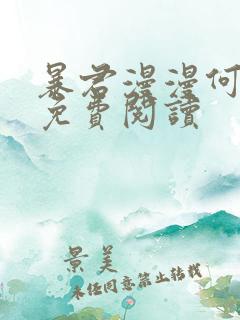 暴君漫漫何
免費閱讀
景美
未经同意禁止转载